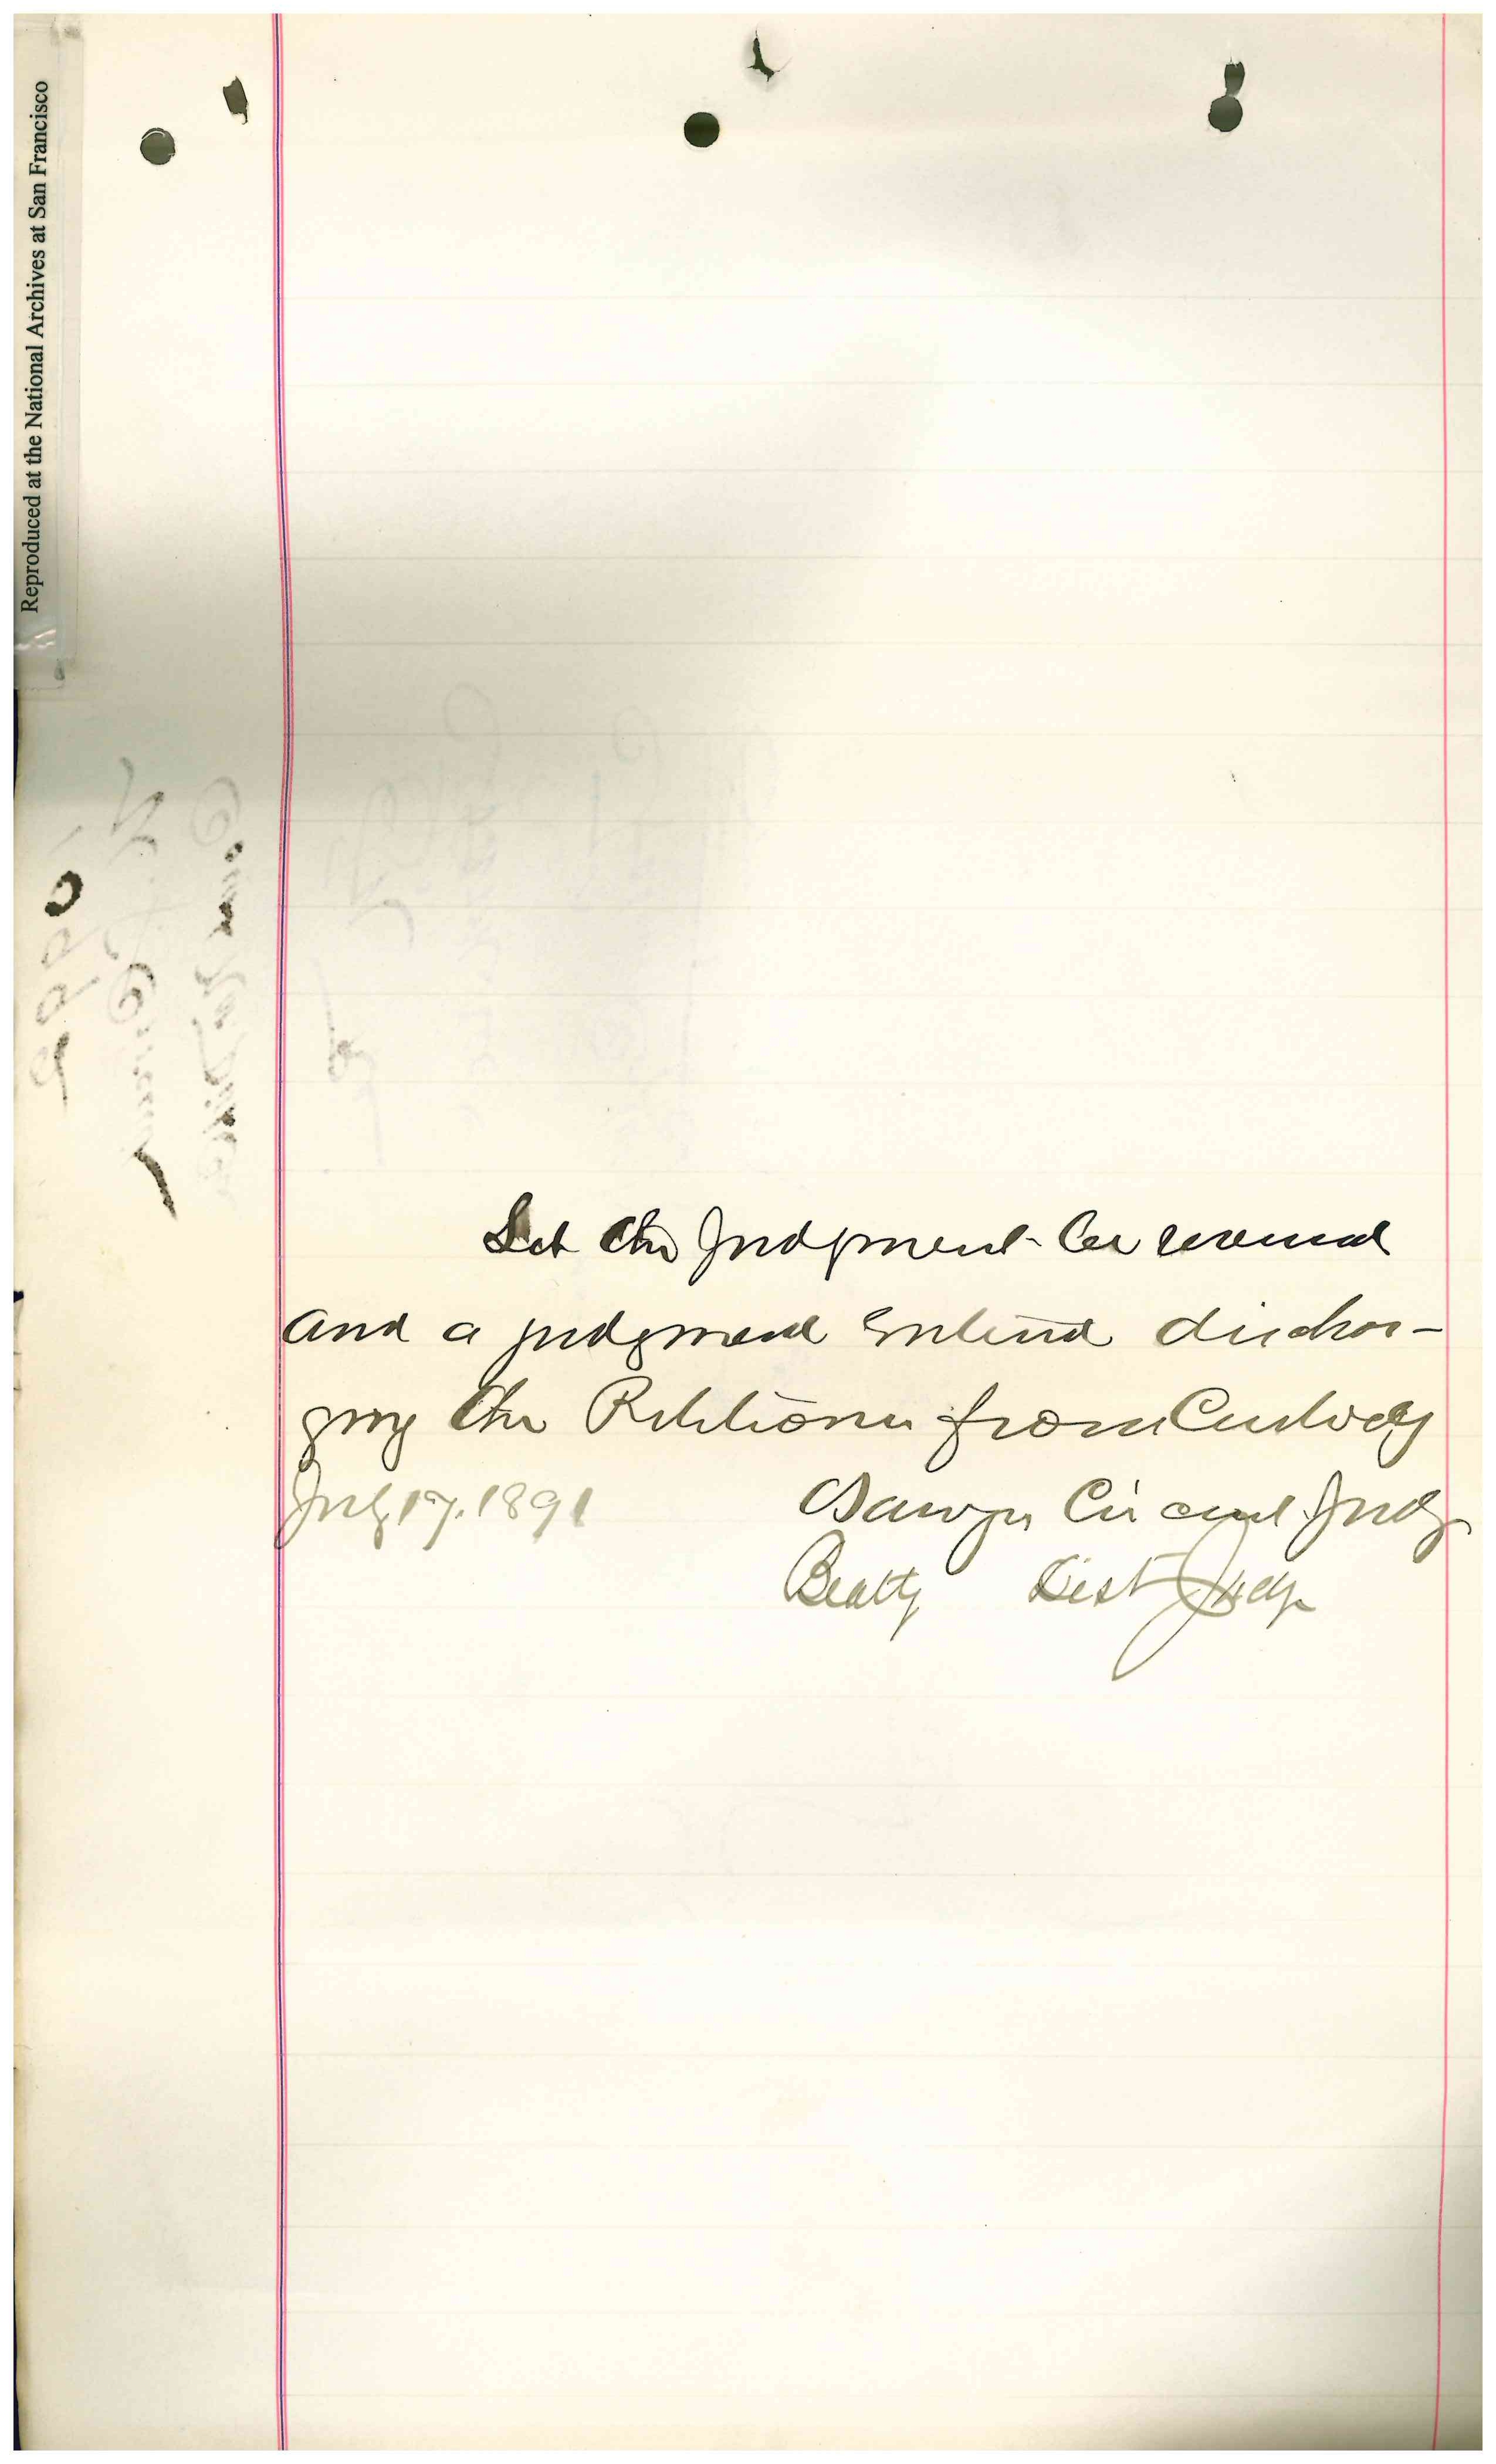 Reproduced at the National Archives at San Francisco
Let the Judgment be reversed
and a judgment entered dischar-
ging the Petitioner from Custody
July 17, 1891 Sawyer Circuit Judge
Beatty Dist Judge